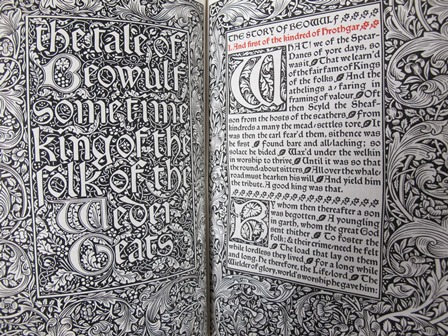 the tale of
Beowulf
sometime
king of the
folk of the
Weder
Geats
THE STORY OF BEOWULF
I. And first of the kindred of Hrothgar
WHAT! we of the Spear-
Danes of yore days, so
was it That we learn'd
of the fair fame of Kings
of the folks And the
athelings a-faring in
framing of valour. Oft
then Scyld the Sheaf-
son from the hosts of the scathers, From
kindreds a many the mead-settles tore; It
was then the earl fear'd them, sithence was
he first Found bare and all-lacking; so
solace he bided, Wax'd under the welkin
in worship to thrive, Until it was so that
the round-about sitters All over the whale-
road must hearken his will And yield him
the tribute. A good king was that.
By whom then thereafter a son
was begotten, A youngling
in garth, whom the great God
sent thither To foster the
folk; & their crime-need he felt
The load that lay on them
while lordless they lived For a long while
and long. He therefore, the Life-lord, The
Wielder of glory, world's worship he gave him: